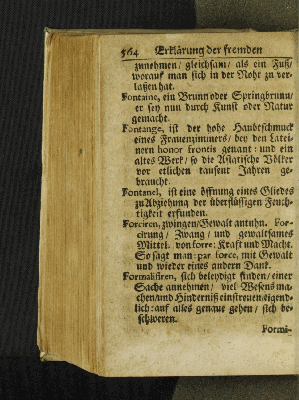 564 Erklärung der fremden
zunehmen/ gleichsam/ als ein Fuß/
worauf man sich in der Noht zu ver-
laßen hat.
Fontaine, ein Brunn oder Springbrunn/
er sey nun durch Kunst oder Natur
gemacht.
Fontange, ist der hohe Haubtschmuck
eines Frauenzimmers/ bey den Latei-
nern honor frontis genant: und ein
altes Werk/ so die Asiatische Völker
vor etlichen tausent Jahren ge-
braucht.
Fontanel, ist eine öffnung eines Gliedes
zu Abziehung der überflüssigen Feuch-
tigkeit erfunden.
Forciren, zwingen/ Gewalt antuhn. For-
cirung/ Zwang/ und gewaltsames
Mittel. von force: Kraft und Macht.
So sagt man: par force, mit Gewalt
und wieder eines andern Dank.
Formalisiren, sich beleydigt finden/ einer
Sache annehmen/ viel Wesens ma-
chen/ und Hinderniß einstreuen/ eigend-
lich: auf alles genaue gehen/ sich be-
schweren.
Formi-